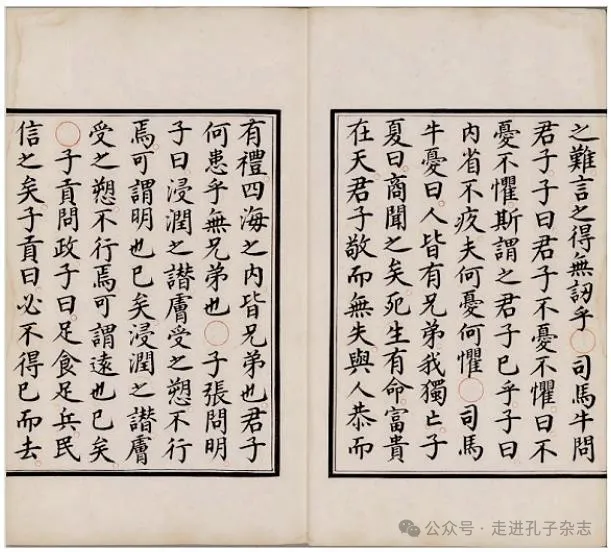 之難言之得無訒乎○司馬牛問
君子子曰君子不憂不懼曰不
憂不懼斯謂之君子已乎子曰
內省不疚夫何憂何懼○司馬
牛憂曰人皆有兄弟我獨亡子
夏曰商聞之矣死生有命富貴
在天君子敬而無失與人恭而
有禮四海之內皆兄弟也君子
何患乎無兄弟也○子張問明
子曰浸潤之譖膚受之愬不行
焉可謂明也已矣浸潤之譖膚
受之愬不行焉可謂遠也已矣
○子貢問政子曰足食足兵民
信之矣子貢曰必不得已而去
公众号·走进孔子杂志